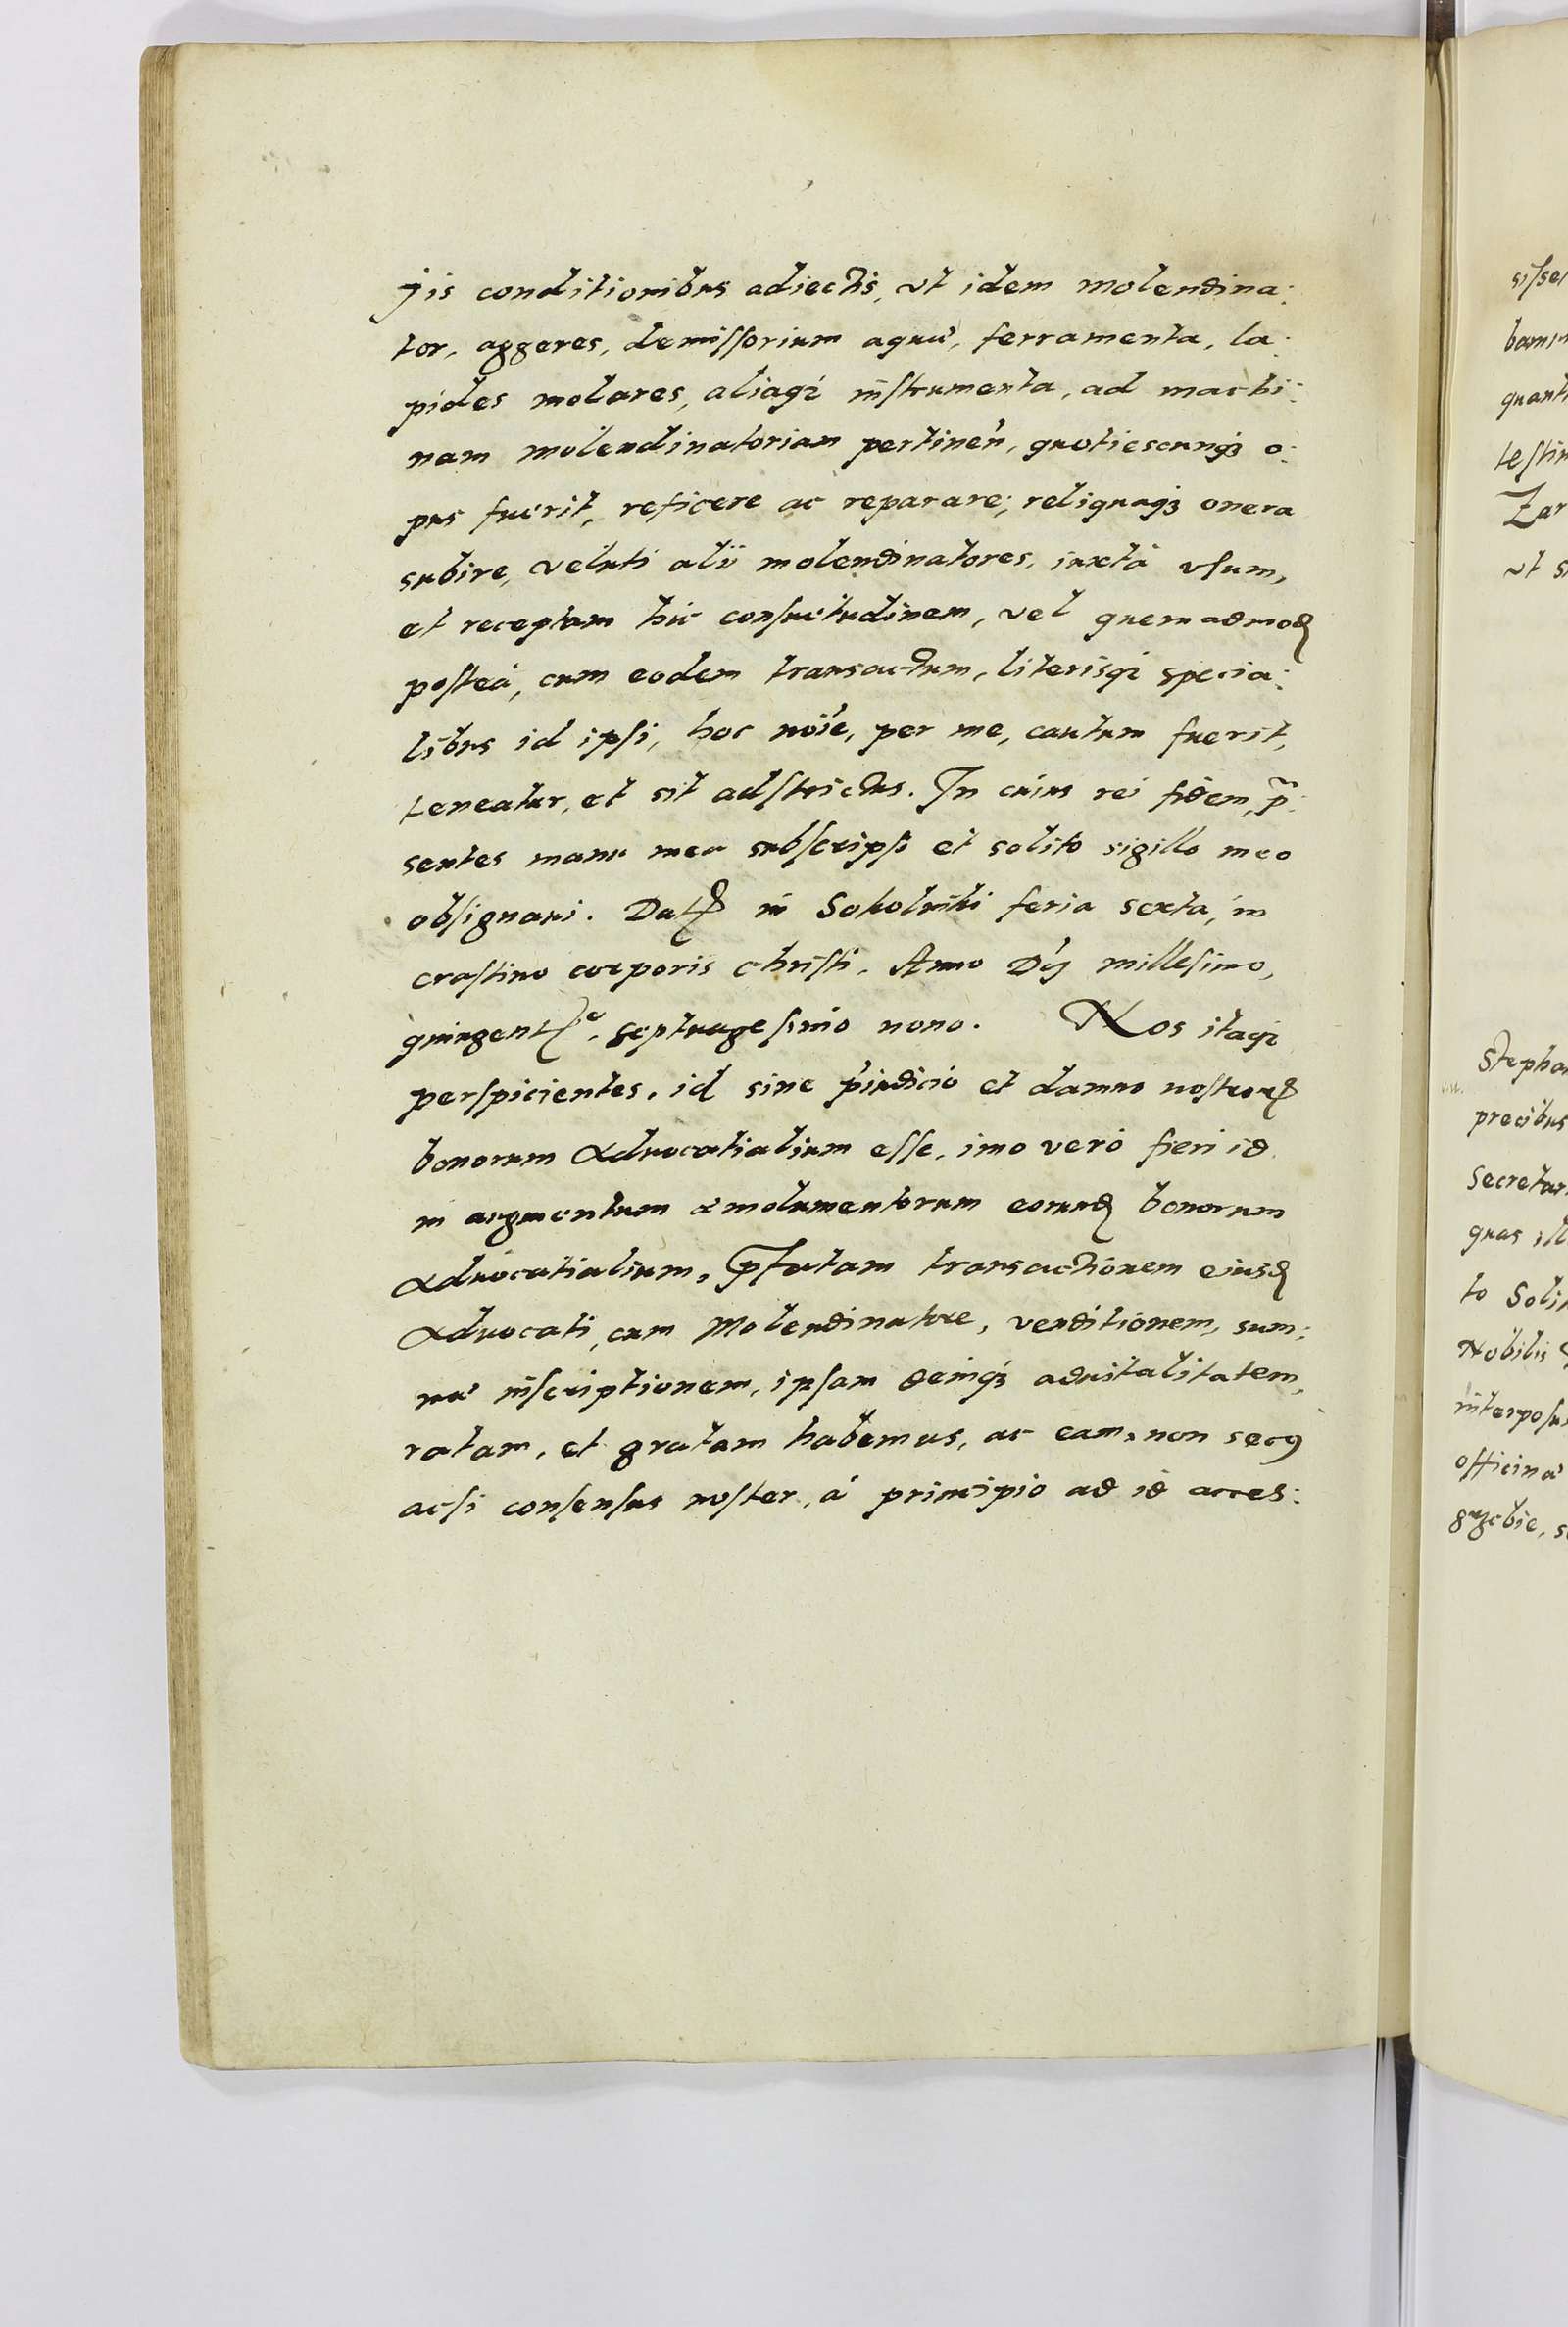 jis conditionibus adiectis, vt idem molendina:
tor, aggeres, demissorium aquæ, ferramenta, la:
pides molares, aliaqȝ instrumenta, ad machi:
nam molendinatoriam pertineñ, quotiescunqȝ o:
pus fuerit, reficere ac reparare; reliquaqȝ onera
subire, veluti alij molendinatores, iuxtà vsum,
et receptam hic consuetudinem, vel quemadmod
posteà, cum eodem transactum, literisqȝ specia:
libus id ipsi, hoc noie, per me, cautum fuerit,
teneatur, et sit adstrictus. In cuius rei fidem, p̃:
sentes manu mea subscripsi et solito sigillo meo
obsignaui. Dat in Sokolniki feria sexta, in
crastino corporis Christi. Anno Dnj millesimo,
quingent°. septuagesimo nono. Nos itaqȝ
perspicientes, id sine piudicio et damno nostror
bonorum Aduocatialium esse, imo verò fieri id
in augmentum emolumentorum eorund bonorum
Aduocatialium, pfatam transactionem eiusd
Aduocati, cum Molendinatore, venditionem, sum:
mæ inscriptionem, ipsam deniqȝ aduitalitatem,
ratam, et gratam habemus, ac eam, non secꝰ
acsi consensus noster, à principio ad id acces:
sisse
bam
quant
testim
Zar
vt s
Stepha
precibus
Secretar
quas ill
to Soli
Nobilis
interposu
officina